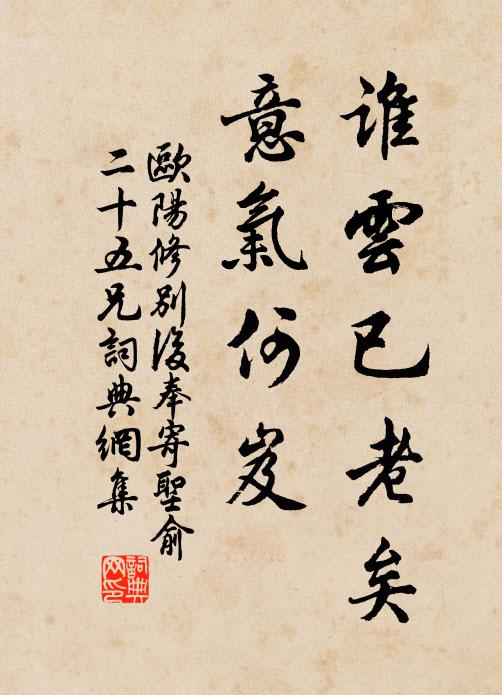 誰雲已老矣
意氣何岌
歐陽修別後奉寄聖俞
二十五兄詞典網集
詞典网印